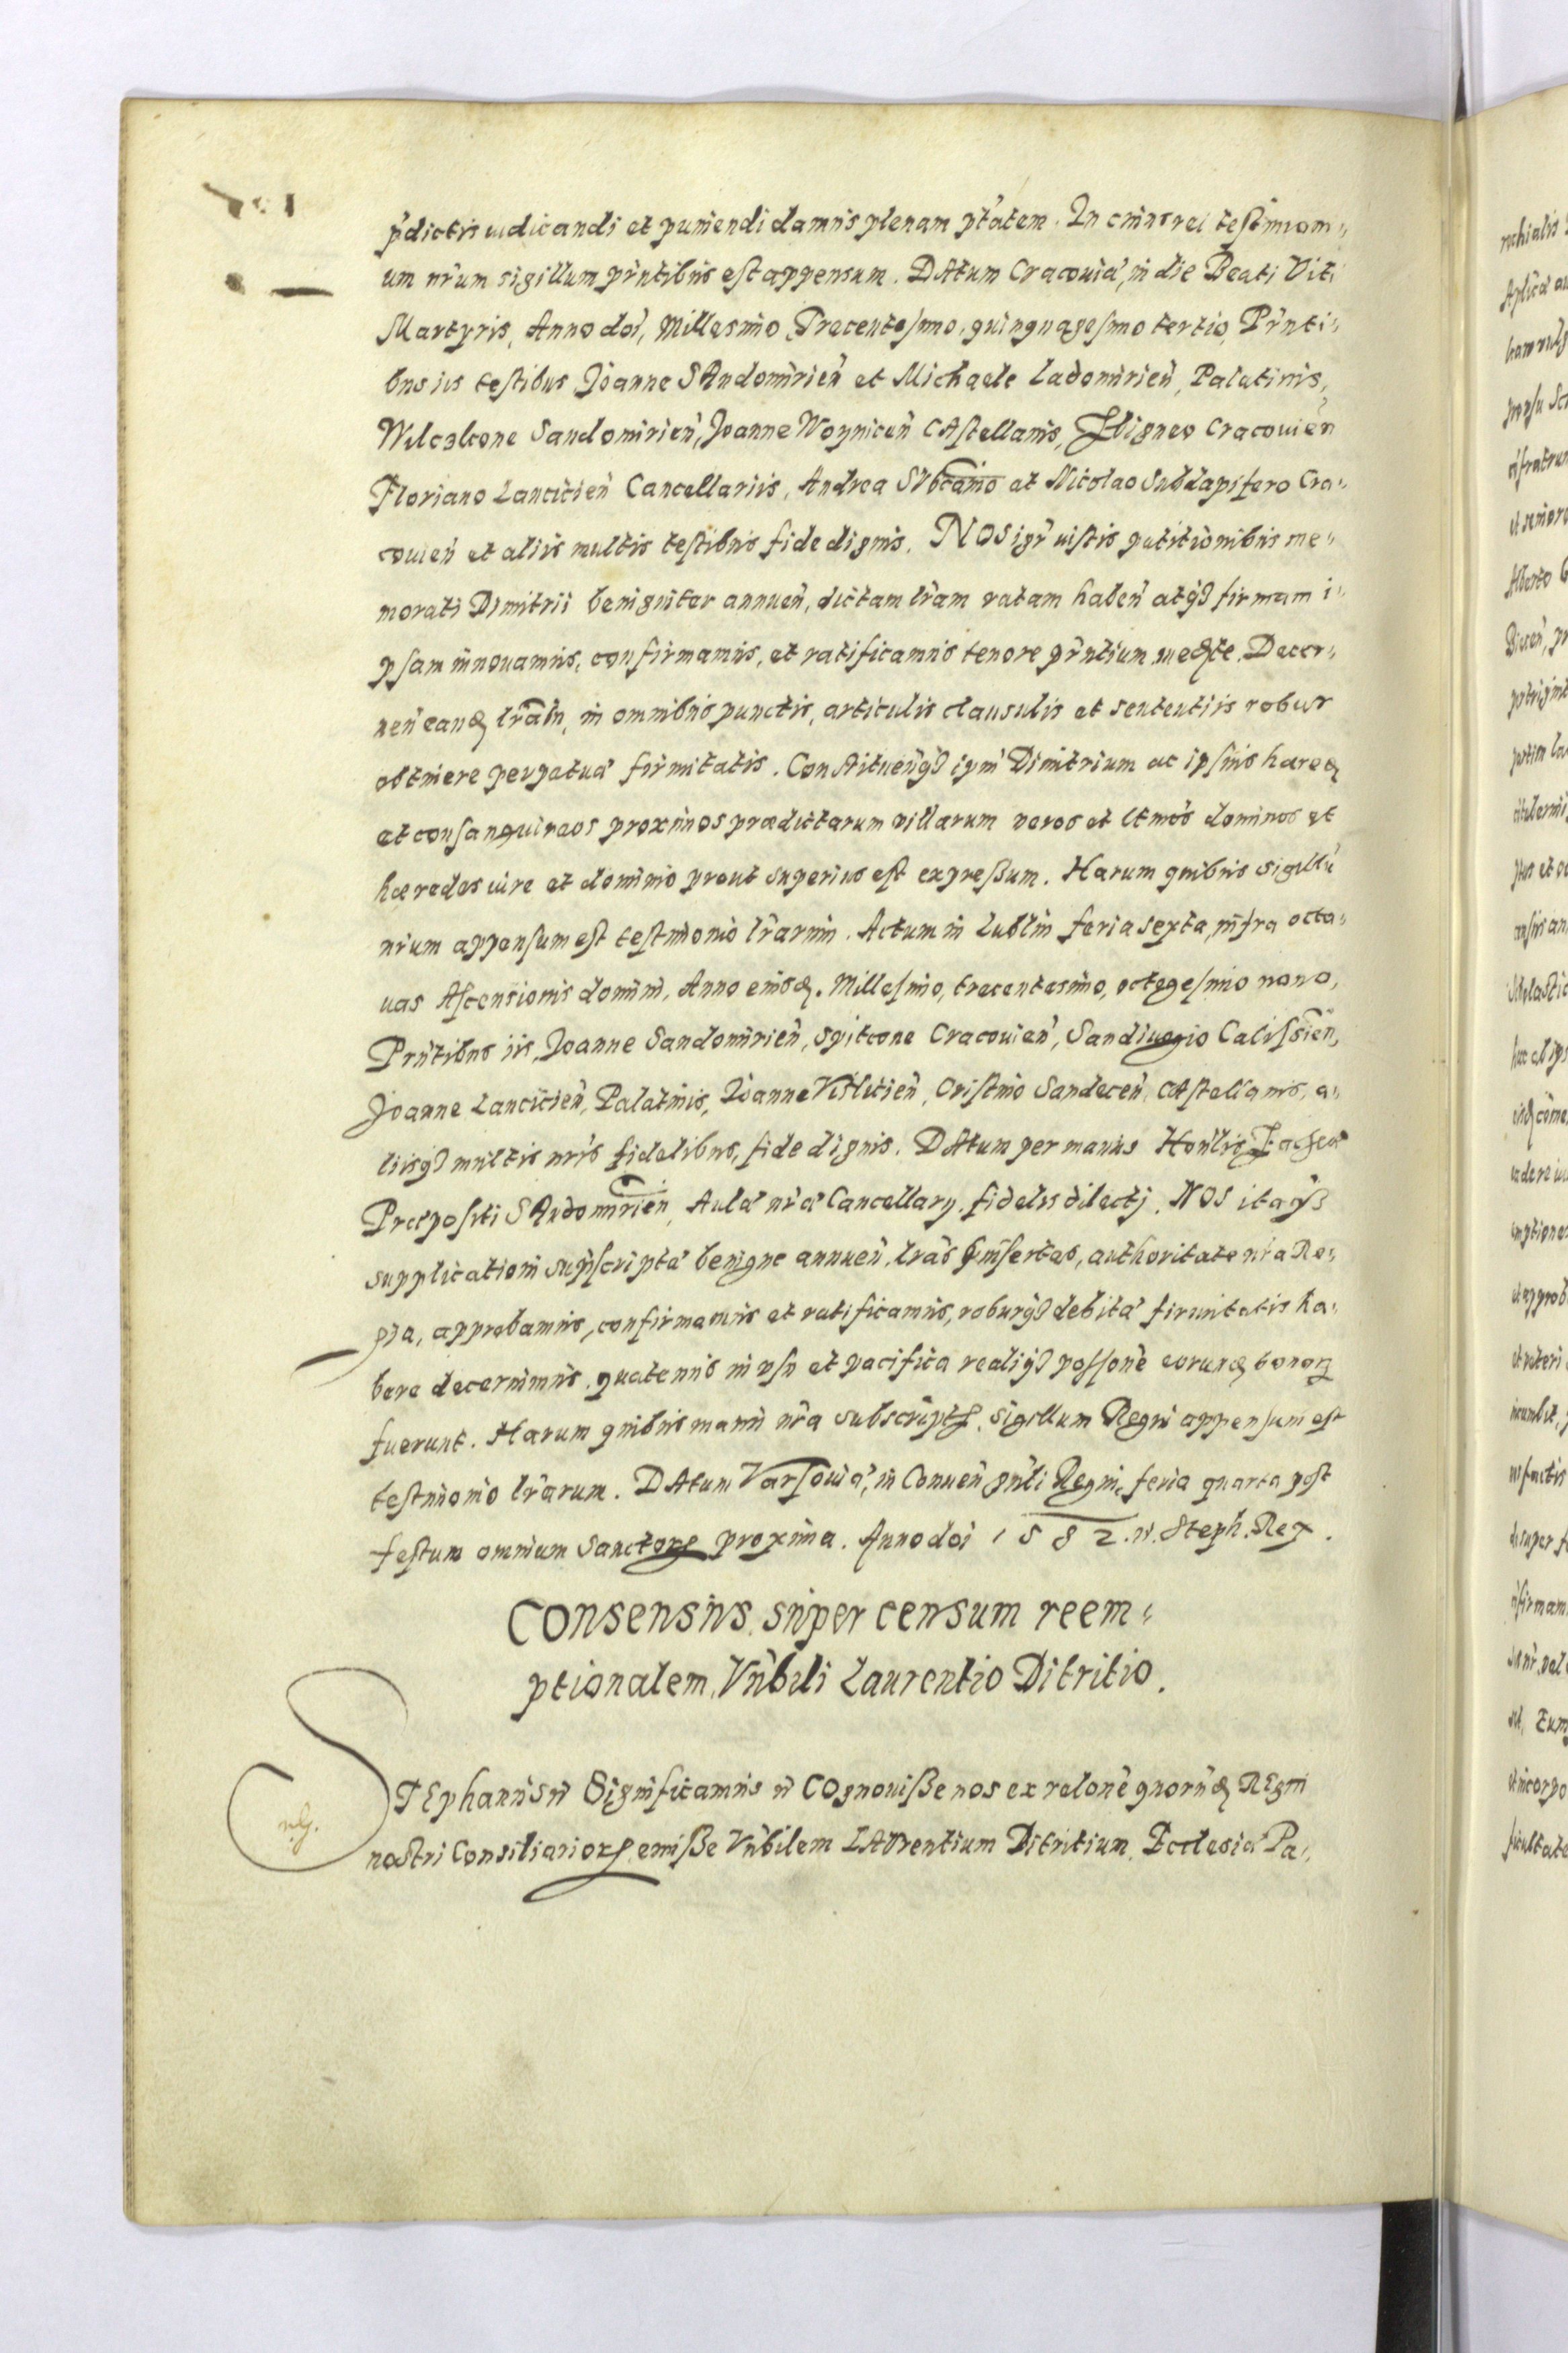 p̃dictis iudicandi et puniendi damnis plenam ptãtem. In cuius rei testimoni„
um nr̃um sigillum pr̃ntibus est appensum. DAtum Cracouiæ, in die Beati Viti
Martyris, Anno doĩ, Millesimo, Trecentesimo, quinquagesimo tertio, Pr̃nti„
bus iis testibus Joanne SAndomirieñ et Michaele Ladomirieñ, Palatinis,
Wilczkone Sandomirieñ, Joanne Woyniceñ CAstellanis, Sbigneo Cracouieñ
Floriano Lancicieñ Cancellariis, Andrea SVbcamo et Nicolao Subdapifero Cra„
couieñ et aliis multis testibus fide dignis. NOS igr̃ iustis petitionibus me„
morati Dimitrii benigniter annueñ, dictam lr̃am ratam habeñ atqȝ firmam i„
psam innouamus, confirmamus, et ratificamus tenore pr̃ntium mediãte. Decer„
neñ eandẽ lr̃am, in omnibus punctis, articulis clausulis et sententiis robur
obtinere perpetuæ firmitatis. ConstitueñqȜ ipm̃ Dimitrium ac ipsius hæredẽ
et consanguineos proximos prædictarum villarum veros et ltmos dominos et
hæredes iure et dominio prout superius est expreßum. Harum quibus sigillũ
nr̃um appensum est testimonio lr̃arum. Actum in Lublin feria sexta, infra octa„
uas Ascensionis domini, Anno eiusdẽ. Millesimo, trecentesimo, octogesimo nono,
Pr̃ntibus iis, Joanne Sandomirieñ, Spitcone Cracouieñ, Sandiuogio Calissieñ,
Joanne Lancicieñ, Palatinis, Joanne Visliciеñ, Cristino Sandeceñ, CAstellanis, a„
liisqȝ multis nr̃is fidelibus, fide dignis. DAtum per manus Honlis
Præpositi SAndomirieñ, Aulæ nr̃æ Cancellary, fidelis dilecti. NOS itaqȝ
supplicationi suprascriptæ benigne annueñ, lrãs insertas, authoritate nr̃a Re„
gia, approbamus, confirmamus et ratificamus, roburqȝ debitæ firmitatis ha„
bere decernimus, quatenus in vsu et pacifica realiqȝ possone eorundẽ bonoꝝ
fuerunt. Harum quibus manu nr̃a subscriptꝭ, Sigillum Regni appensum est
testimonio lr̃arum. DAtum Varsouiæ, in Conueñ gñli Regni, feria quarta post
festum omnium Sanctoꝝ proxima. Anno doĩ 1582. Steph. Rex.
COnsensus super censum reem„
ptionalem, Vñbili Laurentio Ditritio.
STEphanus Significamus COgnouiße nos ex relone quorũdẽ REgni
nostri Consiliarioꝝ emiße Vñbilem LAVrentium Ditritium, Ecclesiæ Pa„